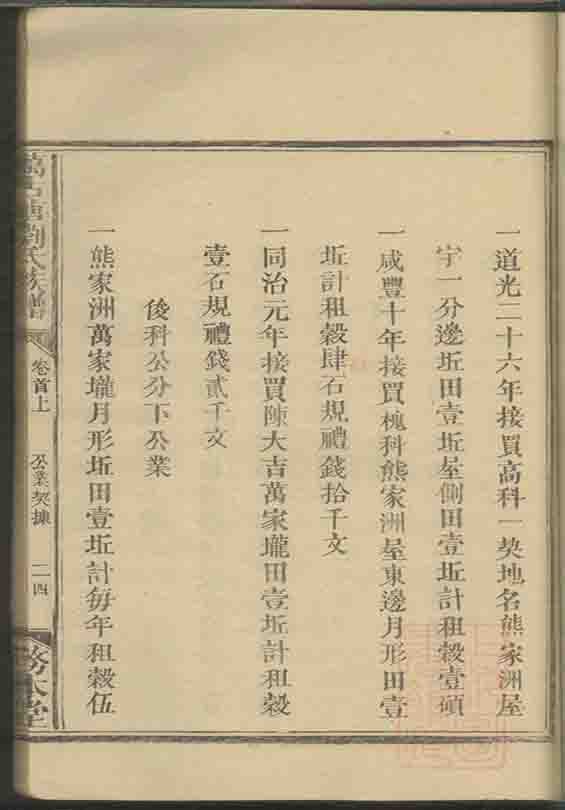 一道光二十六年接買高科一契地名熊家洲屋
宇一分邊坵田壹坵屋側田壹坵計租穀壹碩
一咸豐十年接買槐科熊家洲屋東邊月形田壹
坵計租穀肆石規禮錢拾千文
一同治元年接買陳大吉萬家壠田壹坵計租穀
壹石規禮錢貳千文
後科公分下公業
一熊家洲萬家壠月形坵田壹坵計每年租穀伍
劉氏族譜
卷首上
公業契據
二四
務本堂